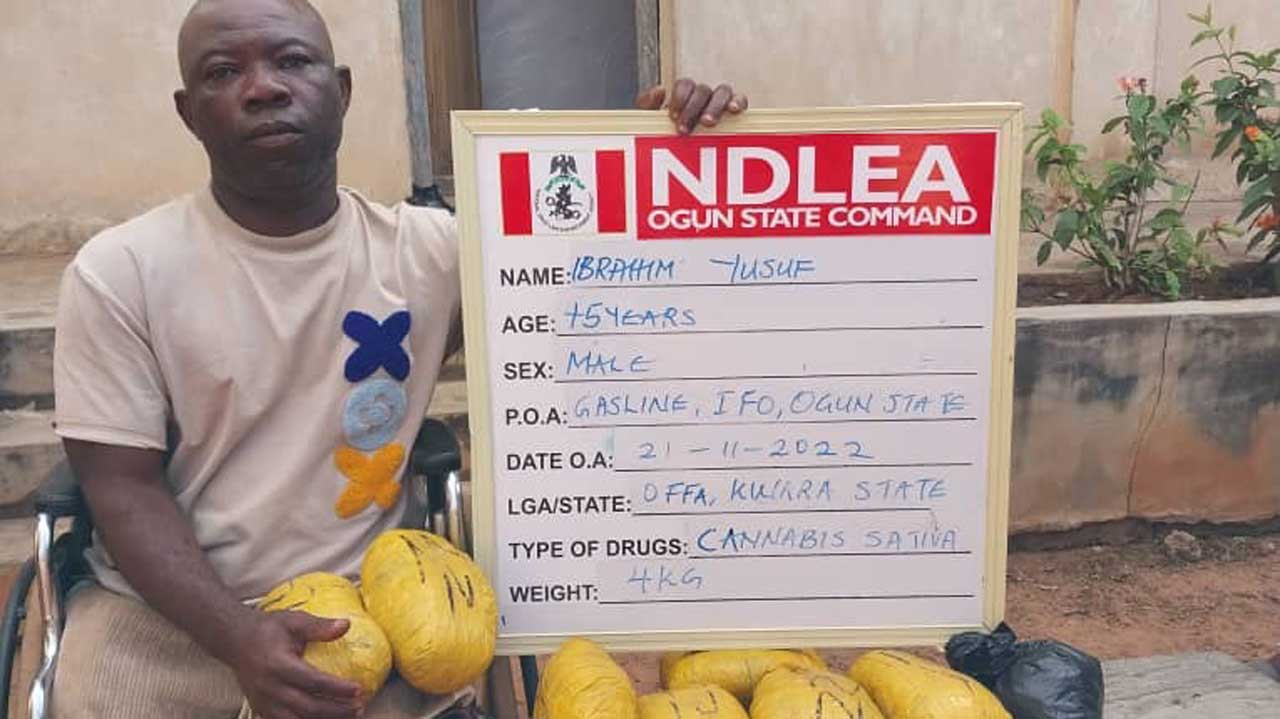 NDLEA
OGUN STATE COMMAND
NAME: IBRAHIM YUSUF
AGE: 45 YEARS
SEX: MALE
P.O.A: GASLINE, IFO, OGUN STATE
DATE O.A: 21-11-2022
LGA/STATE: OFFA, KWARA STATE
TYPE OF DRUGS: CANNABIS SATIVA
WEIGHT: 4KG